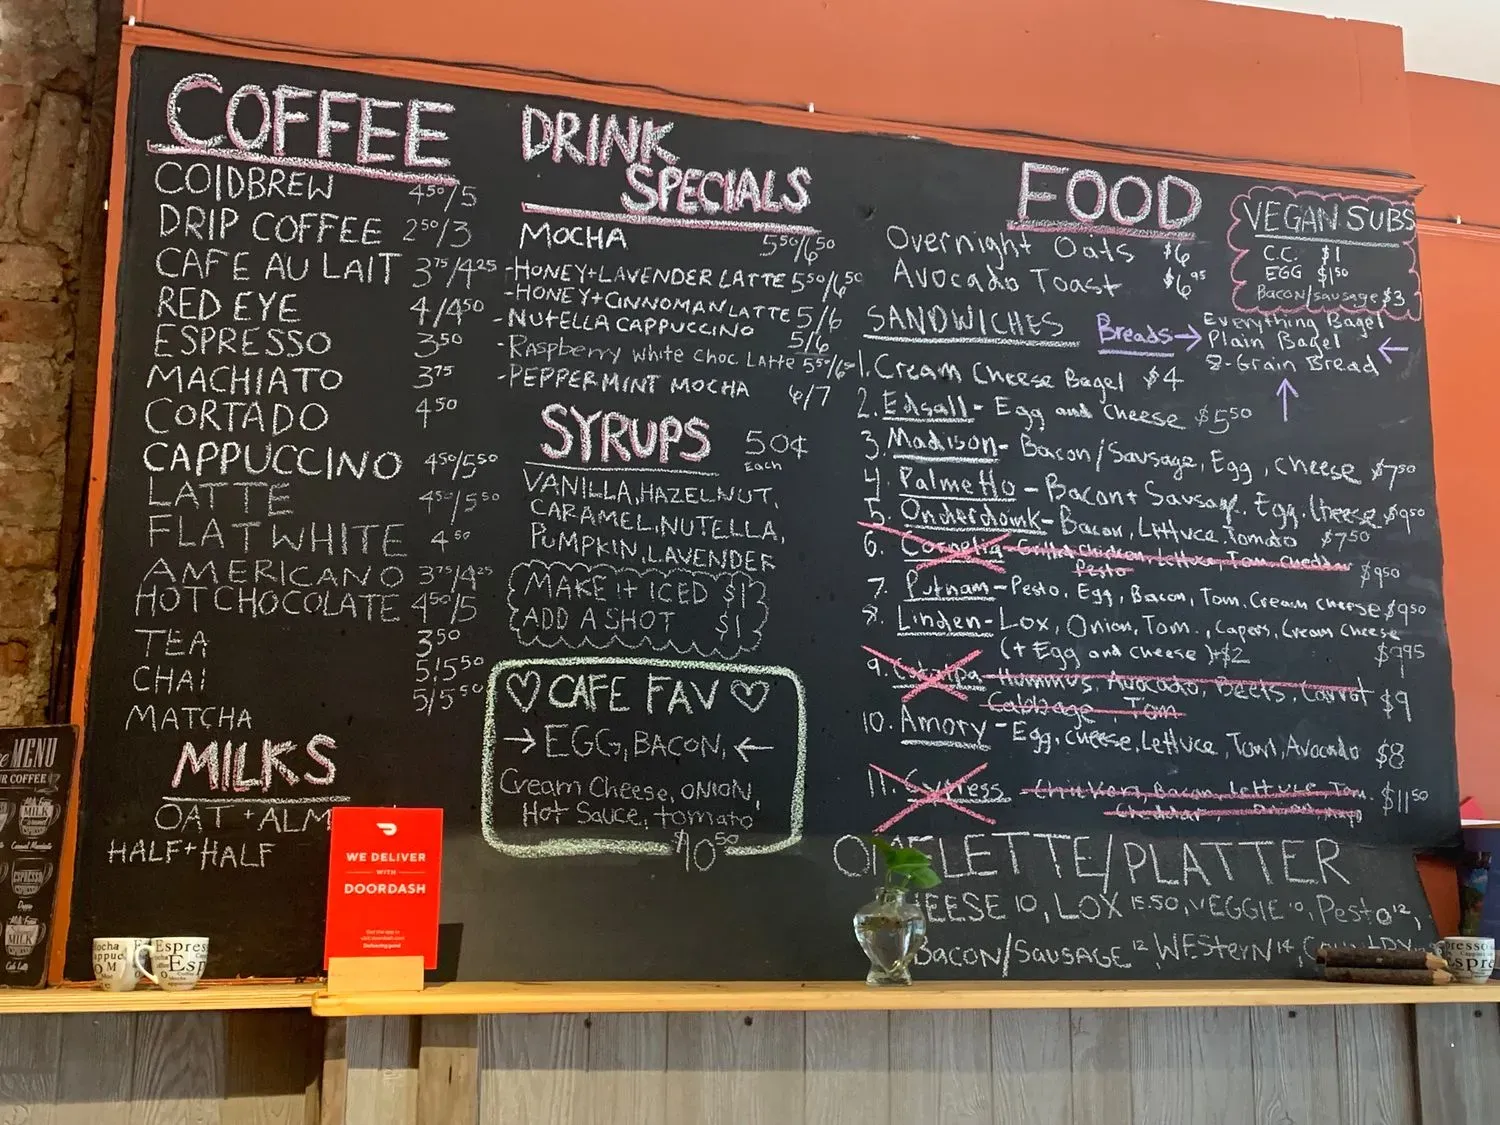 COFFEE
COLDBREW 4⁵⁰/5
DRIP COFFEE 2⁵⁰/3
CAFE AU LAIT 3⁷⁵/4²⁵
RED EYE 4/4⁵⁰
ESPRESSO 3⁵⁰
MACHIATO 3⁷⁵
CORTADO 4⁵⁰
CAPPUCCINO 4⁵⁰/5⁵⁰
LATTE 4⁵⁰/5⁵⁰
FLAT WHITE 4⁵⁰
AMERICANO 3⁷⁵/4²⁵
HOT CHOCOLATE 4⁵⁰/5
TEA 3⁵⁰
CHAI 5/5⁵⁰
MATCHA 5/5⁵⁰
MILKS
OAT + ALM
HALF+HALF
DRINK
SPECIALS
MOCHA 5⁵⁰/6⁵⁰
-HONEY+LAVENDER LATTE 5⁵⁰/6⁵⁰
-HONEY+CINNOMAN LATTE 5/6
-NUTELLA CAPPUCCINO 5/6
-Raspberry White Choc Latte 5⁵⁰/6⁵⁰
-PEPPERMINT MOCHA 6/7
SYRUPS 50¢
Each
VANILLA, HAZELNUT,
CARAMEL, NUTELLA,
PUMPKIN, LAVENDER
MAKE it ICED $1
ADD A SHOT $1
♡ CAFE FAV ♡
→ EGG, BACON, ←
Cream Cheese, ONION,
Hot Sauce, tomato
$10⁵⁰
FOOD
Overnight Oats $6
Avocado Toast $6⁹⁵
VEGAN SUBS
C.C. $1
EGG $1⁵⁰
Bacon/sausage $3
SANDWICHES
Breads → Everything Bagel
Plain Bagel ←
8-Grain Bread
↑
1. Cream Cheese Bagel $4
2. Edsall- Egg and cheese $5⁵⁰
3. Madison- Bacon/Sausage, Egg, cheese $7⁵⁰
4. Palmetto - Bacon + Sausage, Egg, Cheese $9⁵⁰
5. Onderdonk- Bacon, Lettuce, Tomato $7⁵⁰
6. Cornelia- Grilled chicken, lettuce, Tom, cheddar
Pesto $9⁵⁰
7. Putnam- Pesto, Egg, Bacon, Tom, Cream cheese $9⁵⁰
8. Linden- Lox, Onion, Tom., Capers, Cream Cheese
(+ Egg and cheese)+$2 $9⁹⁵
9. Catalpa- Hummus, Avocado, Beets, Carrot
Cabbage, Tom $9
10. Amory - Egg, cheese, Lettuce, Tom, Avocado $8
11. Cypress - Chicken, Bacon, Lettuce, Tom
Cheddar Onion Mayo $11⁵⁰
OMELETTE/PLATTER
HEESE 10, LOX 15.50, VEGGIE ¹⁰, Pesto ¹²,
BACON/SAUSAGE ¹², WESTERN ¹⁴,
WE DELIVER
WITH
DOORDASH
MENU
R COFFEE
ESPRESSO
MILK
Espress
Esp
presso
spre